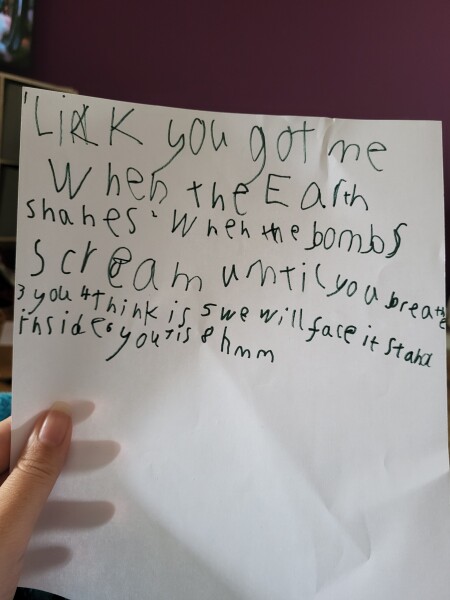 'Link you got me
When the Earth
shahes. When the bombs
scream until you breathe
3 you 4 think is 5 we will face it stand
inside 6 you 7 is 8 hmm